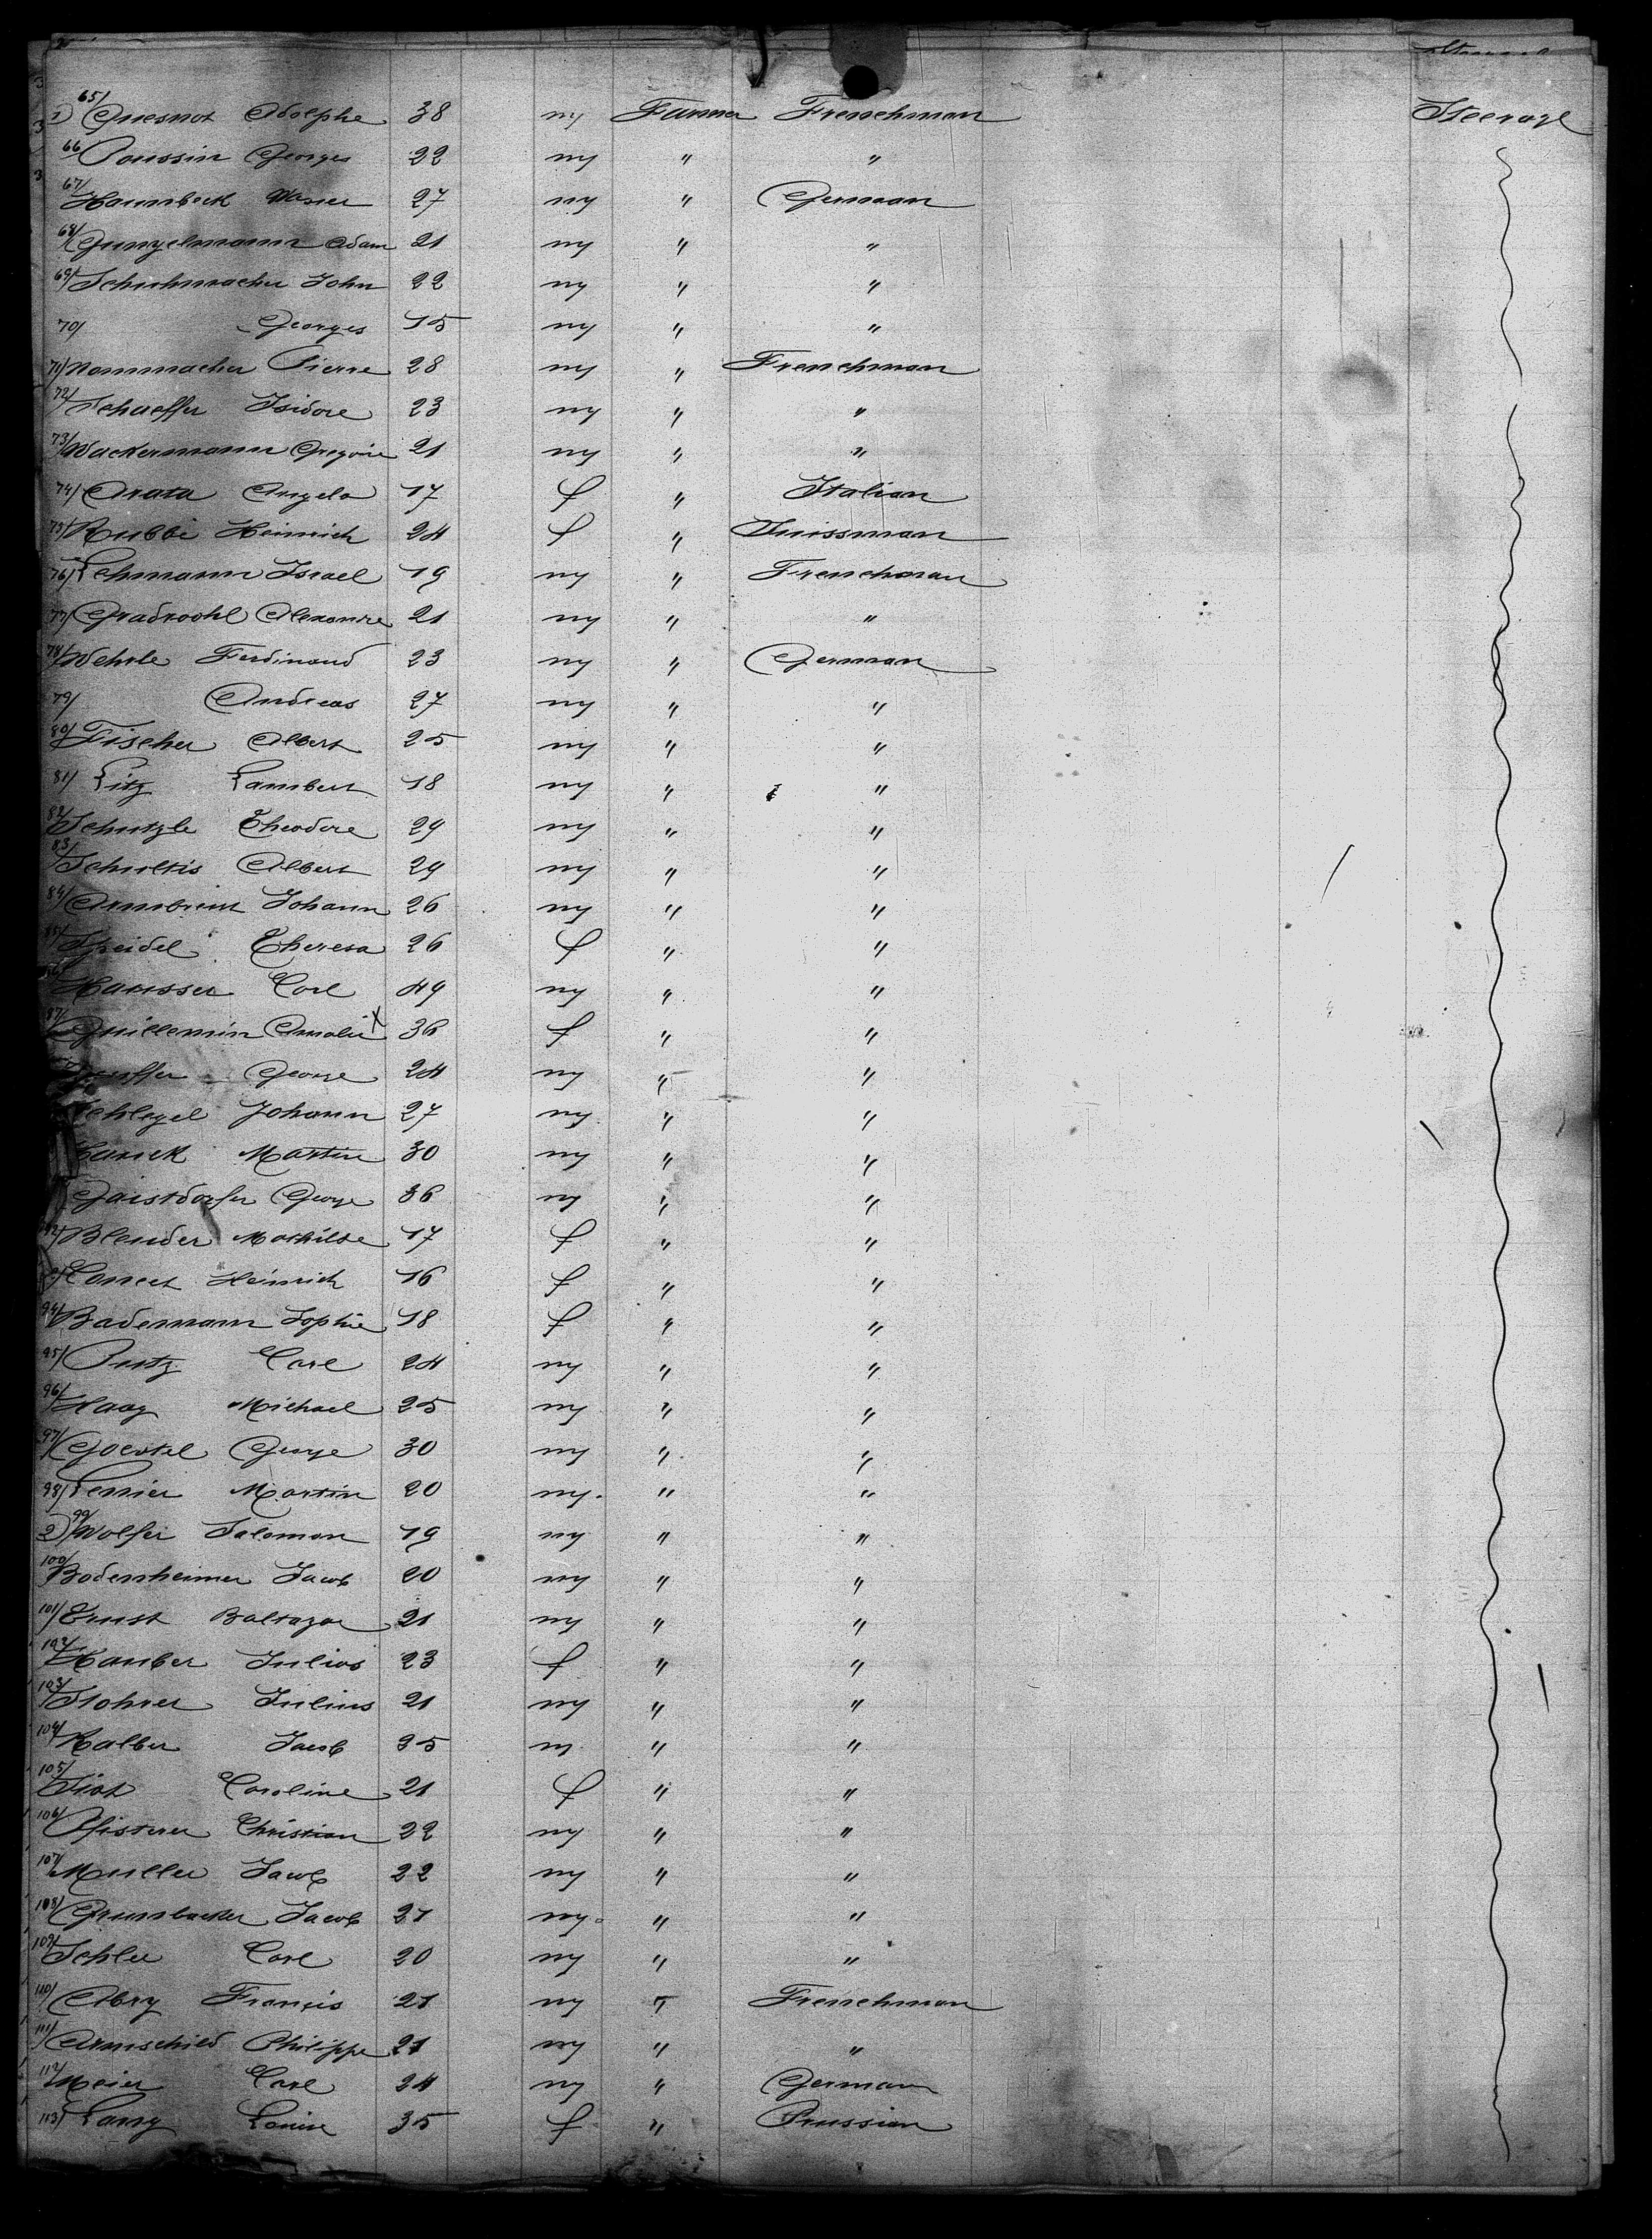 65/ Quesnot Adolphe 38 m Farmer Frenchman Steerage
66 Poussin Georges 22 m " "
67/ Hannbeck 27 m " German
68/ Gungelmann Adam 21 m " "
69/ Schuhmacher John 22 m " "
70/ Georges 15 m " "
71/ Nommacher Pierre 28 m " Frenchman
72/ Schaeffer Isidore 23 m " "
73/ Wackermann Gregoire 21 m " "
74/ Arata Angela 17 f " Italian
75/ Rubbi Heinrich 24 f " Suissman
76/ Lehmann Israel 19 m " Frenchman
77/ Gradwohl Alexandre 21 m " "
78/ Wehrle Ferdinand 23 m " German
79/ Andreas 27 m " "
80/ Fischer Albert 25 m " "
81/ Litz Lambert 18 m " "
82/ Schutzle Theodore 29 m " "
83/ Schultis Albert 29 m " "
84/ Armbrust Johann 26 m " "
85/ Speidel Theresa 26 f " "
Hausser Carl 49 m " "
87/ Guillemin Amalie x 36 f " "
George 24 m " "
Schlegel Johann 27 m " "
Martin 30 m " "
Gaistdorfer George 36 m " "
92/ Blender Mathilde 17 f " "
Heinrich 16 f " "
94/ Bademann Sophie 18 f " "
95/ Putz Carl 24 m " "
96/ Haag Michael 25 m " "
97/ Goertel George 30 m " "
98/ Martin 20 m " "
2) 99/ Wolfer Salomon 19 m " "
100/ Bodenheimer Jacob 20 m " "
101/ Ernst Baltazar 21 m " "
102/ Hauber Julius 23 f " "
103/ Stohrer Julius 21 m " "
104/ Kalber Jacob 35 m " "
105/ Caroline 21 f " "
106/ Pfisterer Christian 22 m " "
107/ Muller Jacob 22 m " "
108/ Grunbacher Jacob 21 m " "
109/ Schlee Carl 20 m " "
110/ Abry Francis 21 m " Frenchman
111/ Armschied Philippe 21 m " "
112/ Meier Carl 24 m " German
113/ Lang Louise 35 f " Prussian